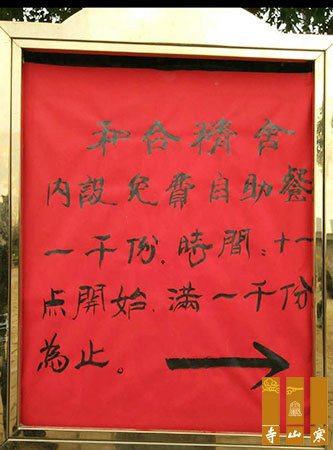 和合精舍
内設免費自助餐
一千份.時間:十一
点開始.滿一千份
為止。
寺山寒